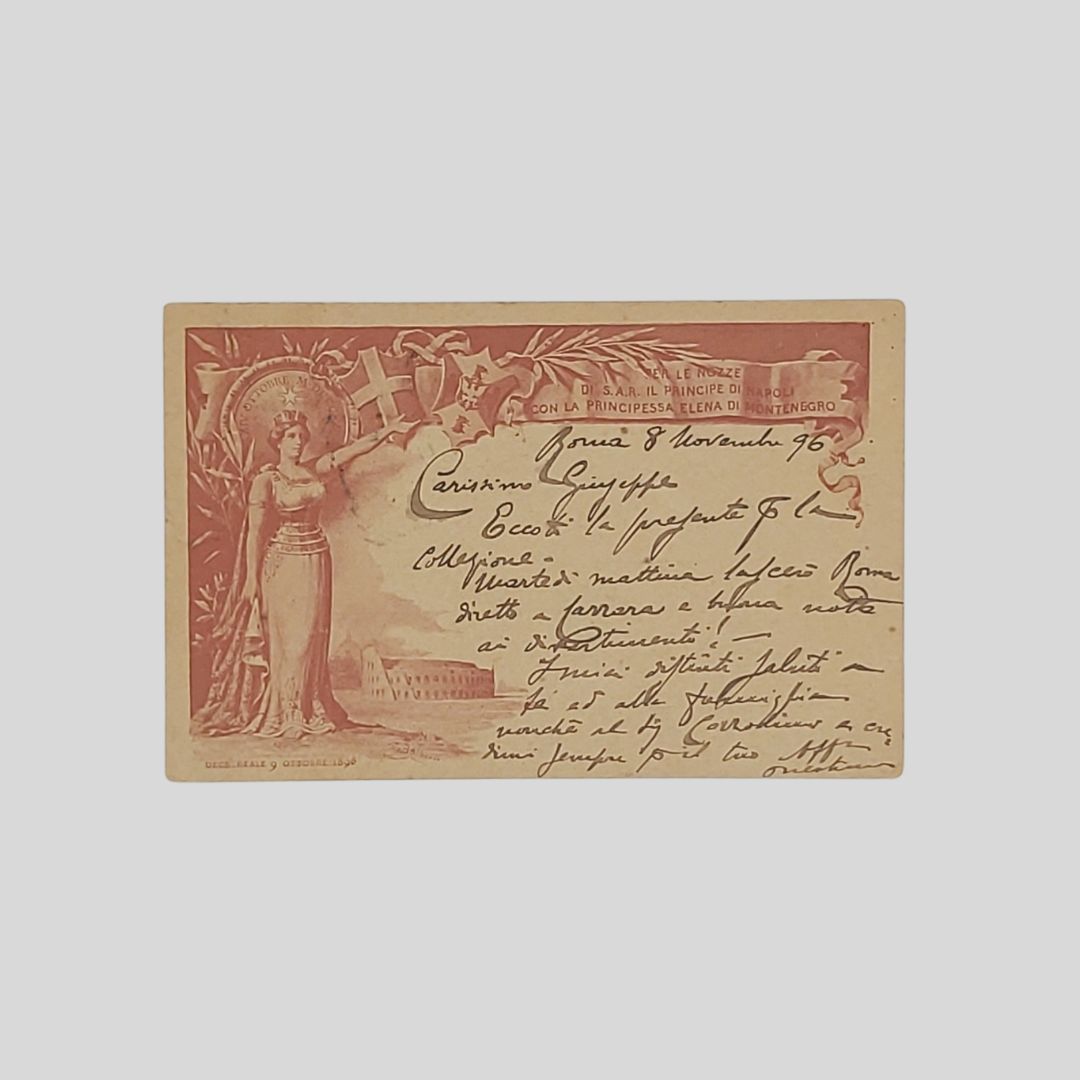 PER LE NOZZE
DI S.A.R. IL PRINCIPE DI NAPOLI
CON LA PRINCIPESSA ELENA DI MONTENEGRO
OTTOBRE
Roma 8 Novembre 96
Carissimo Giuseppe
Eccoti la presente p la
Collezione -
Martedì mattina lascerò Roma
diretto a Carrara e buona notte
ai divertimenti! -
I miei distinti saluti a
te ed alla famiglia
nonchè al Sig
dimi sempre p il tuo Aff
DECR. REALE 9 OTTOBRE 1896